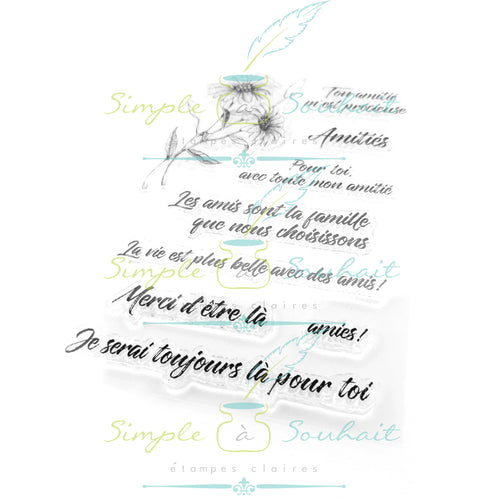 Ton amitié
m'est précieuse
Simple à Souhait
étampes claires
Amitiés
Pour toi,
avec toute mon amitié
Les amis sont la famille
que nous choisissons
La vie est plus belle avec des amis!
Simple à Souhait
étampes claires
Merci d'être là
amies!
Je serai toujours là pour toi
Simple à Souhait
étampes claires